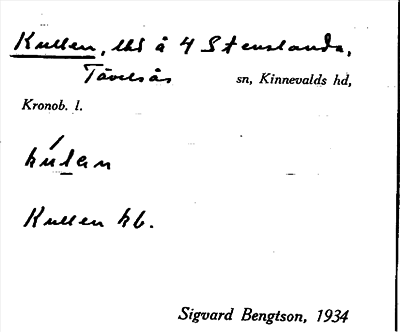 Kullen, lht å 4 Stenslanda,
Tävelsås sn, Kinnevalds hd,
Kronob. l.
Kullen hb.
Sigvard Bengtson, 1934